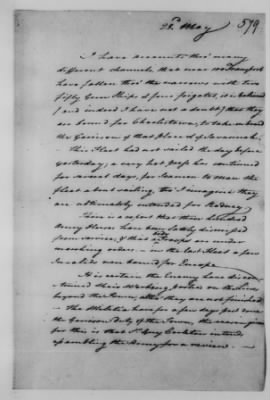 579
23d. May
I have accounts thro' many
different channels that near 100 Transports
have fallen thro' the narrows with two
fifty Gun Ships & four frigates, it is believed
(and indeed I have not a doubt) that they
are bound for Charlestown, to take on board
the Garrison of that place & Savannah.
This Fleet had not sailed the day before
yesterday; a very hot press has continued
for several days, for Seamen to man the
fleet about sailing, tho' I imagine they
are ultimately intended for Rodney.
There is a report that three hundred
Army Horses have been lately dismissed
from service, & that Troops are under
marching orders. — in the last Fleet a few
Invalids were bound for Europe.
It is certain the Enemy have discon-
tinued their Working parties on the Lines
beyond the Town, altho' they are not finished
— The Militia have for a few days past done
the Garrison duty of the Town, the reason given
for this is that Sr. Guy Carleton intends
assembling the Army for a review. —